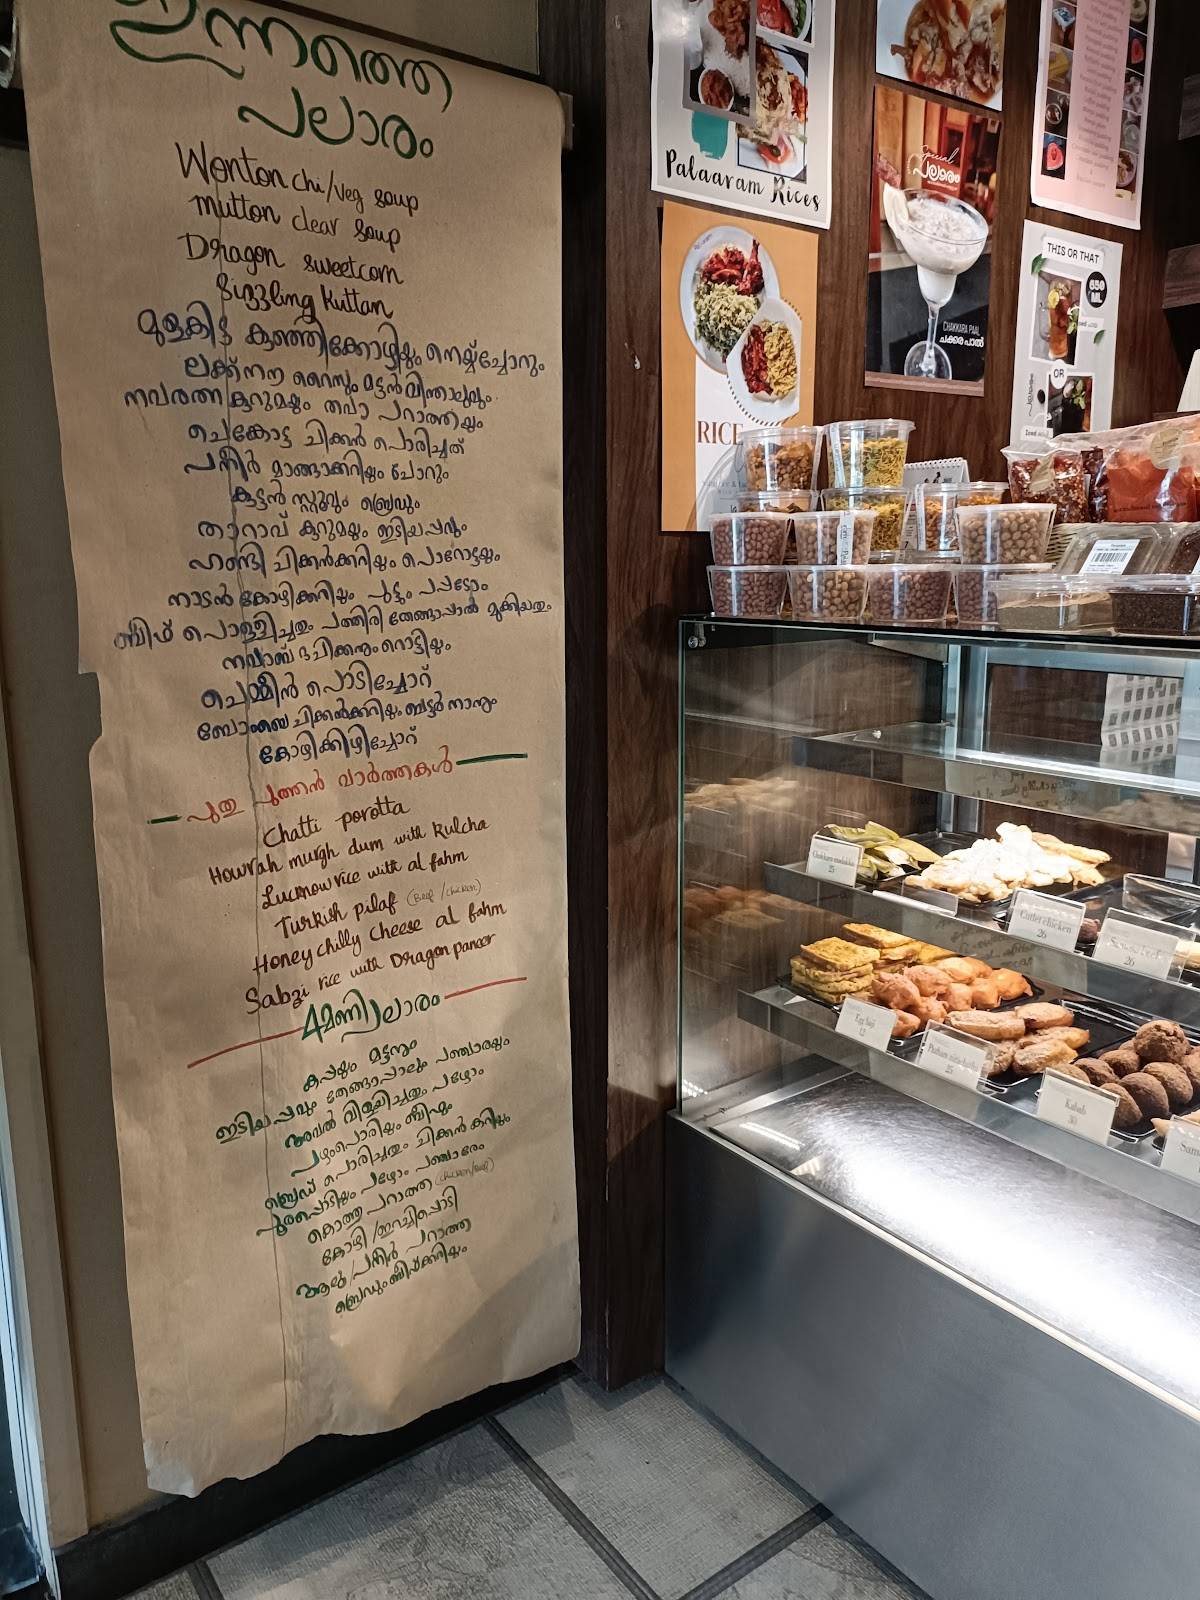 ഇന്നത്തെ
പലാരം
Wonton chi/veg soup
Mutton clear soup
Dragon sweetcorn
Sizzling kuttan
മുളകിട്ട കുഞ്ഞിക്കോഴിയും നെയ്ച്ചോറും
ലക്ക്നൗ റൈസും മട്ടൻ വിന്താലുവും
നവരത്ന കുറുമയും തവാ പറാത്തയും
ചെങ്കോട്ട ചിക്കൻ പൊരിച്ചത്
പനീർ മാങ്ങാക്കറിയും ചോറും
കുട്ടൻ സ്റ്റൂവും ബ്രെഡും
താറാവ് കുറുമയും ഇടിയപ്പവും
ഹണ്ടി ചിക്കൻക്കറിയും പൊറോട്ടയും
നാടൻ കോഴിക്കറിയും പുട്ടും പപ്പടോം
ബീഫ് പൊള്ളിച്ചതും പത്തിരി തേങ്ങാപ്പാൽ മുക്കിയതും
നവാബ് ദ ചിക്കനും റൊട്ടിയും
ചെമ്മീൻ പൊടിച്ചോറ്
ബോംബെ ചിക്കൻക്കറിയും ബട്ടർ നാനും
കോഴിക്കിഴിച്ചോറ്
പുതു പുത്തൻ വാർത്തകൾ
Chatti porotta
Howrah murgh dum with kulcha
Lucknow rice with al fahm
Turkish pilaf (Beef/chicken)
Honey chilly cheese al fahm
Sabzi rice with Dragon paneer
4മണിപ്പലാരം
കപ്പയും മട്ടനും
ഇടിയപ്പവും തേങ്ങാപ്പാലും പഞ്ചാരയും
അവൽ വിളയിച്ചതും പഴോം
പഴംപൊരിയും ബീഫും
ബ്രെഡ് പൊരിച്ചതും ചിക്കൻ കറിയും
പുരപ്പൊടിയും പഴോം പഞ്ചാരേം
കൊത്തു പറാത്ത (chicken/beef)
കോഴി/ഇറച്ചിപ്പൊടി
ആലു/പനീർ പറാത്ത
ബ്രെഡും ബീഫ്ക്കറിയും
Palaaram Rices
RICE
Special
പലാരം
CHAKKARA PAAL
ചക്കര പാൽ
THIS OR THAT
650 ML
OR
Cutlet chicken
26
Samosa beef
26
Egg baji
12
25
Kabab
30